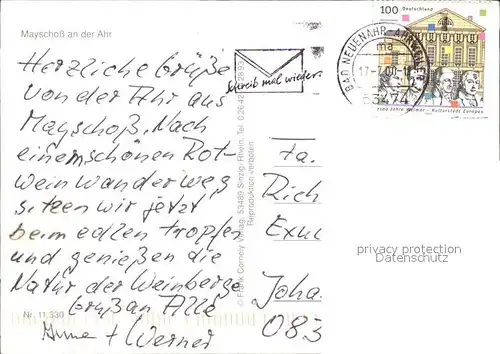 Mayschoß an der Ahr
Herzliche Grüße
von der Ahr aus
Mayschoß. Nach
einem schönen Rot-
wein wanderweg
sitzen wir jetzt
beim edlen tropfen
und genießen die
Natur der Weinberge
Gruß an Alle
Anne + Werner
Nr. 11.330
© Frank Cornely Verlag, 53489 Sinzig/Rhein, Tel. 02642
Reproduktion verboten
Schreib mal wieder!
BAD NEUENAHR-AHRWEILER
ma
53474
100 Deutschland
1100 Jahre Weimar - Kulturstadt Europas
Fa.
Rich
Joha
083
privacy protection
AKPOOL.DE